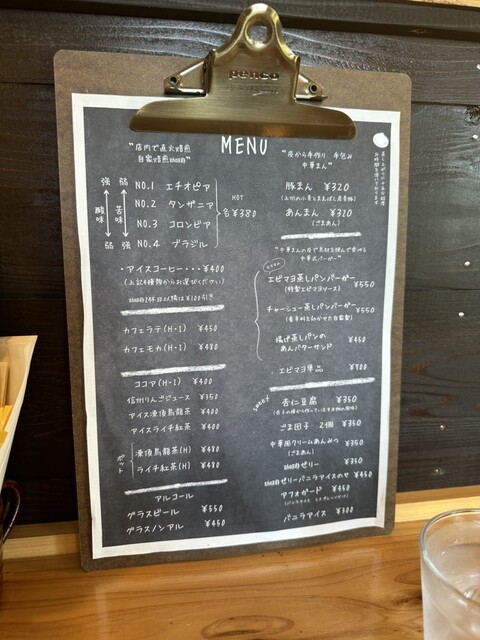 penco
MENU
"店内で直火焙煎
自家焙煎珈琲"
強 弱
酸味 苦味
弱 強
NO.1 エチオピア
NO.2 タンザニア
NO.3 コロンビア
NO.4 ブラジル
HOT
各¥380
・アイスコーヒー・・・¥400
(上記4種類からお選びください)
珈琲2杯目以降は¥100引き
カフェラテ(H・I) ¥450
カフェモカ(H・I) ¥480
ココア(H・I) ¥400
信州りんごジュース ¥350
アイス凍頂烏龍茶 ¥400
アイスライチ紅茶 ¥400
ポット
凍頂烏龍茶(H) ¥480
ライチ紅茶(H) ¥480
アルコール
グラスビール ¥550
グラスノンアル ¥450
"皮から手作り 手包み
中華まん"
豚まん ¥320
あんまん ¥310
(ごまあん)
"中華まんの皮で具材を挟んで食べる
中華式バーガー"
エビマヨ蒸しパンバーガー ¥550
(特製エビマヨソース)
チャーシュー蒸しパンバーガー ¥550
揚げ蒸しパンの
あんバターサンド ¥450
エビマヨ単品
sweet
杏仁豆腐 ¥350
ごま団子 2個 ¥350
中華風クリームあんみつ ¥350
(ごまあん)
珈琲ゼリー ¥350
珈琲ゼリーバニラアイスのせ ¥450
アフォガード ¥450
バニラアイス ¥300